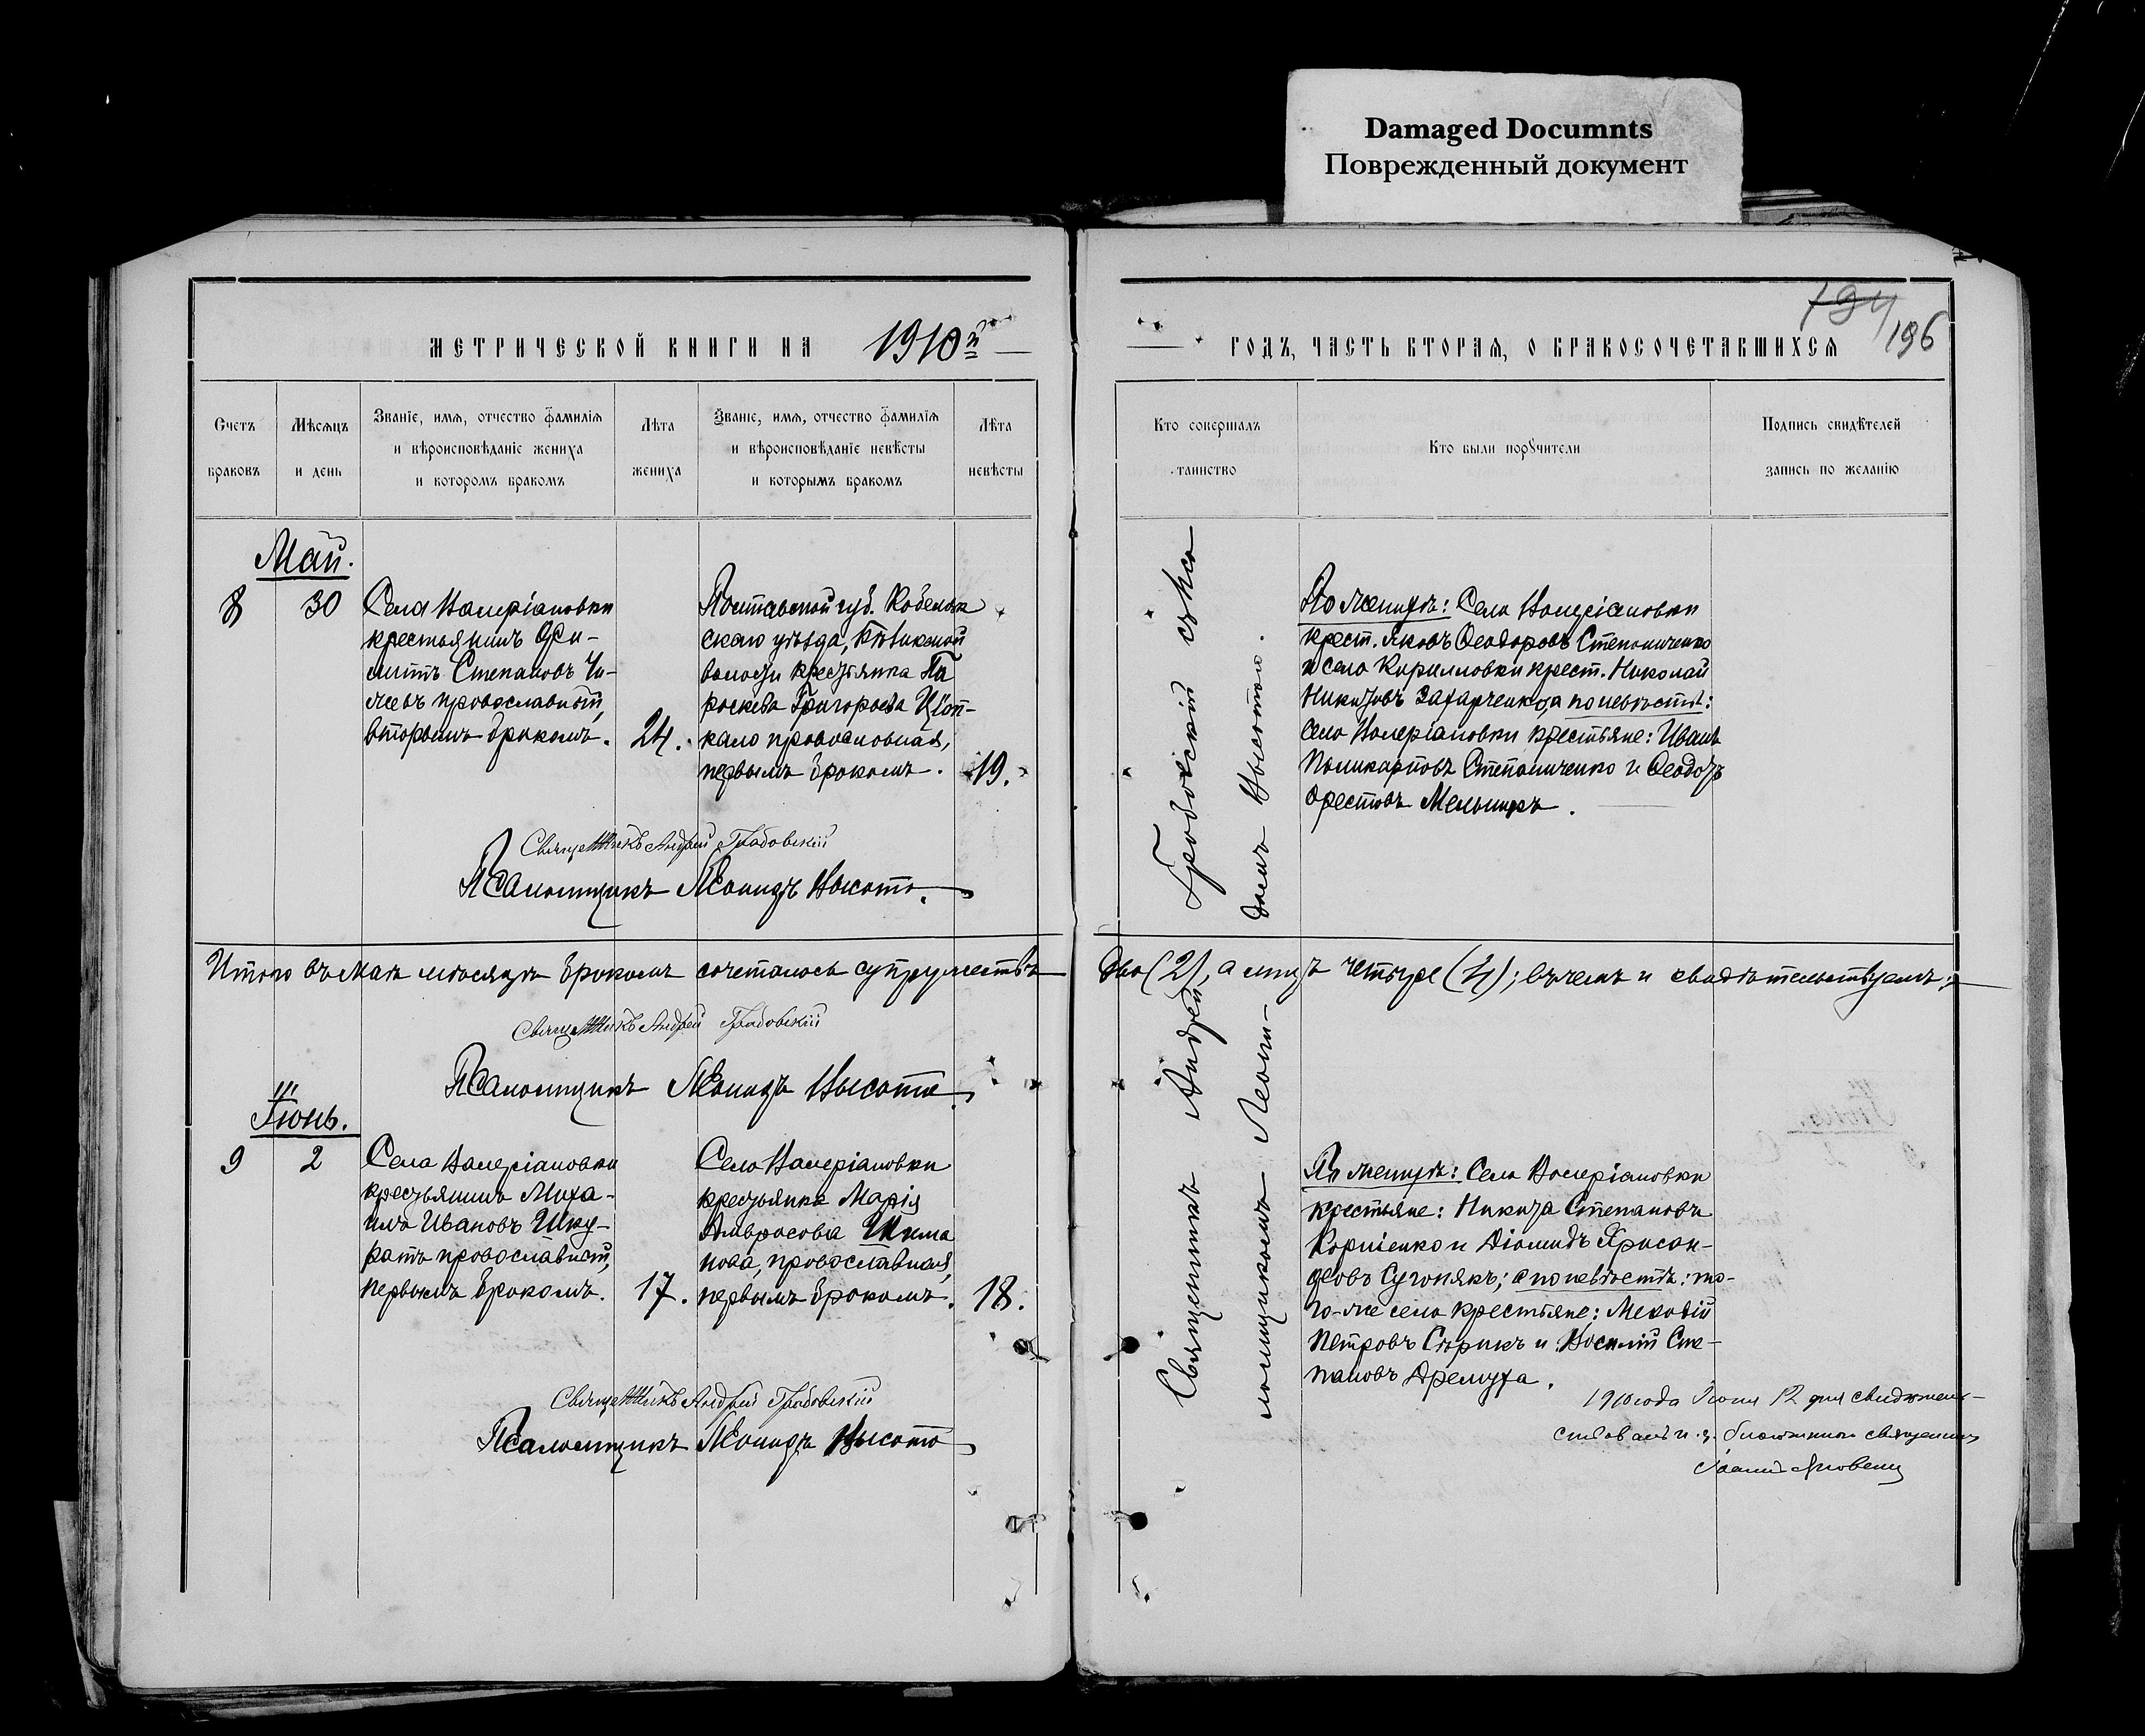 Damaged Documnts
Поврежденный документ
МЕТРИЧЕСКОЙ КНИГИ НА 1910й
ГОДЪ, ЧАСТЬ ВТОРАЯ, О БРАКОСОЧЕТАВШИХСЯ
194
196
Счетъ браковъ
Мѣсяцъ и день
Званіе, имя, отчество фамилія
и вѣроисповѣданіе жениха
и которомъ бракомъ
Лѣта жениха
Званіе, имя, отчество фамилія
и вѣроисповѣданіе невѣсты
и которымъ бракомъ
Лѣта невѣсты
Кто совершалъ таинство
Кто были порꙋчители
Подпись свидѣтелей
запись по желанію
Май.
8
30
Села Валеріановки
крестьянинъ
Степановъ
православный,
вторымъ бракомъ.
24.
Полтавской губ. Кобеляк-
скаго уѣзда,
волости крестьянка Па
раскева Григорьева
православная,
первымъ бракомъ.
19.
По женихѣ: Села Валеріановки
крест. Яковъ Ѳеодоровъ Степаниченко
и села Кирилловки крест. Николай
Никитовъ Захарченко, а по невѣстѣ:
села Валеріановки крестьяне: Иванъ
Поликарповъ Степаниченко и Ѳеодотъ
Орестовъ Мельникъ.
Священникъ Андрей Грабовскій
Псаломщикъ Леонидъ Высота.
Итого въ маѣ мѣсяцѣ бракомъ сочеталось супружествъ два (2), а лицъ четыре (4); въ чемъ и свидѣтельствуемъ:
Священникъ Андрей Грабовскій
Псаломщикъ Леонидъ Высота.
Іюнь.
9
2
Села Валеріановки
крестьянинъ Миха-
илъ Ивановъ Шку-
ратъ православный,
первымъ бракомъ.
17.
Села Валеріановки
крестьянка Марія
Амвросова Шима
нова, православная,
первымъ бракомъ.
18.
По женихѣ: Села Валеріановки
крестьяне: Никита Степановъ
Корніенко и Діомидъ Хрисан-
ѳовъ Сугонякъ; а по невѣстѣ: то-
го-же села крестьяне: Меѳодій
Петровъ Старикъ и Василій Сте-
пановъ Дремуха.
Священникъ Андрей Грабовскій
Псаломщикъ Леонидъ Высота
Священникъ Андрей Грабовскій съ пса
ломщикомъ Леони-
домъ Высотою.
1910 года Іюня 12 дня свидѣтель-
ствовалъ и. д. благочиннаго священникъ